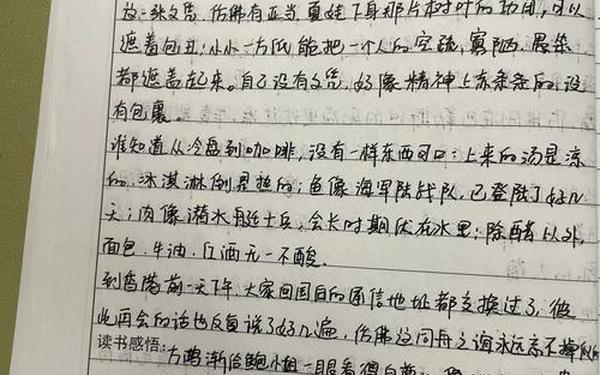 这一张文凭,仿佛有亚当、夏娃下身那片树叶的功用,可以
遮羞包丑;小小一方纸能把一个人的空疏、寡陋、愚笨
都遮盖起来。自己没有文凭,好像精神上赤条条的,没
有包裹。
谁知道从冷盘到咖啡,没有一样东西可口:上来的汤是凉
的,冰淇淋倒是热的;鱼像海军陆战队,已登陆了好几
天;肉像潜水艇士兵,会长时期伏在水里;除醋以外,
面包、牛油、红酒无一不酸。
到香港前一天下午,大家回国后的通信地址都交换过了,彼
此再会的话也反复说了好几遍,仿佛这同舟之谊永远忘不掉似的
读书感悟:
方鸿渐给鲍小姐一眼看得自尊